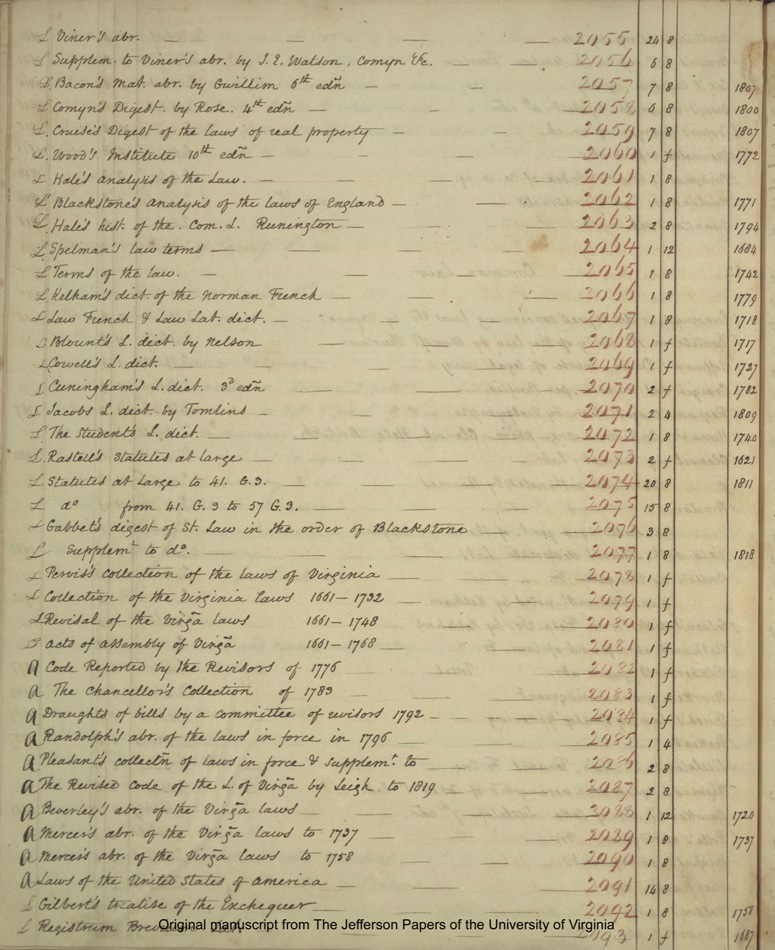 L Viner's abr. 2055 24 8
L Supplem. to Viner's abr. by I. E. Watson, Comyn &c. 2056 6 8
L. Bacon's Mat. abr. by Gwillim 6th edn 2057 7 8 1807
L. Comyn's Digest. by Rose. 4th edn 2058 6 8 1800
L. Cruise's Digest of the laws of real property 2059 7 8 1807
L. Wood's Institute 10th edn. 2060 1 f 1772
L Hale's Analysis of the Law. 2061 1 8
L Blackstone's Analysis of the laws of England 2062 1 8 1771
L. Hale's hist. of the. Com. L. Runington 2063 2 8 1794
L Spelman's law terms 2064 1 12 1684
L Terms of the law. 2065 1 8 1742
L. Kelham's dict. of the Norman French 2066 1 8 1779
L Law French & Law Lat. dict. 2067 1 8 1718
L Blount's L. dict. by Nelson 2068 1 f 1717
L Cowell's L. dict. 2069 1 f 1727
L Cuningham's L. dict. 3d edn 2070 2 f 1782
L Jacobs L. dict. by Tomlins 2071 2 4 1809
L The Student's L. dict. 2072 1 8 1740
L. Rastell's Statutes at large 2073 2 f 1621
L Statutes at Large to 41. G. 3. 2074 20 8 1811
L do from 41. G. 3 to 57 G. 3. 2075 15 8
L Gabbet's digest of St. Law in the order of Blackstone 2076 3 8
L Supplemt to do. 2077 1 8 1818
L Pervis's Collection of the laws of Virginia 2078 1 f
L Collection of the Virginia laws 1661-1732 2079 1 f
L Revisal of the Virga laws 1661-1748 2080 1 f
Acts of assembly of Virga 1661-1768 2081 1 f
A Code Reported by the Revisors of 1776 2082 1 f
A The Chancellor's Collection of 1783 2083 1 f
A Draughts of bills by a committee of revisors 1792 2084 1 f
A Randolph's abr. of the laws in force in 1796 2085 1 4
A Pleasant's collectn of laws in force & supplemt. to 2086 2 8
A The Revised Code of the L. of Virga by Leigh to 1819 2087 2 8
A Beverley's abr. of the Virga laws 2088 1 12 1720
A Mercer's abr. of the Virga laws to 1737 2089 1 8 1737
A Mercer's abr. of the Virga laws to 1758 2090 1 8
A Laws of the United States of America 2091 14 8
L Gilbert's treatise of the Exchequer 2092 1 8 1758
L Registrum 2093 1 f 1687
Original manuscript from The Jefferson Papers of the University of Virginia